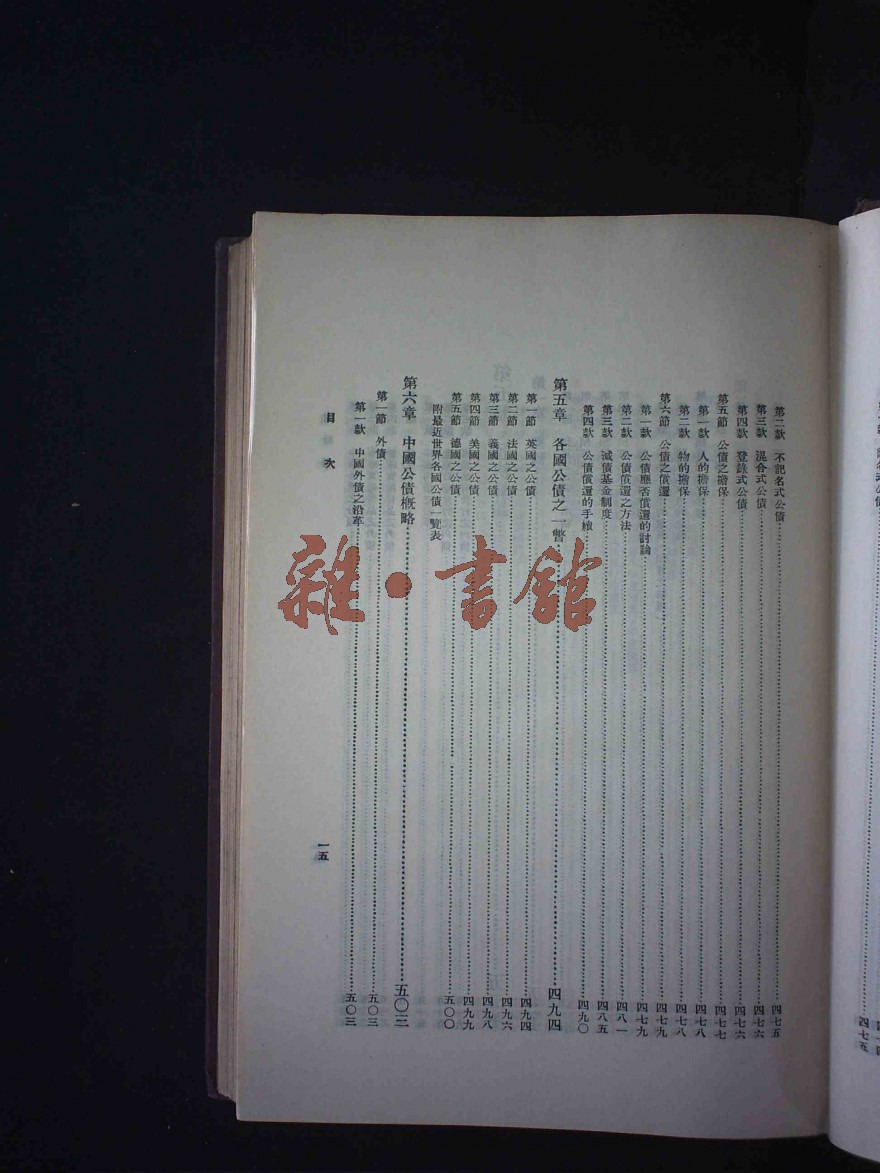 第二款 不記名式公債……四七五
第三款 混合式公債……四七六
第四款 登錄式公債……四七六
第五節 公債之擔保……四七七
第一款 人的擔保……四七八
第二款 物的擔保……四七八
第六節 公債之償還……四七九
第一款 公債應否償還的討論……四七九
第二款 公債償還之方法……四八一
第三款 減債基金制度……四八五
第四款 公債償還的手續……四九〇
第五章 各國公債之一瞥……四九四
第一節 英國之公債……四九四
第二節 法國之公債……四九六
第三節 義國之公債……四九八
第四節 美國之公債……四九九
第五節 德國之公債……五〇〇
附最近世界各國公債一覽表
第六章 中國公債概略……五〇三
第一節 外債……五〇三
第一款 中國外債之沿革……五〇三
目次
一五
雜·書館
四七五